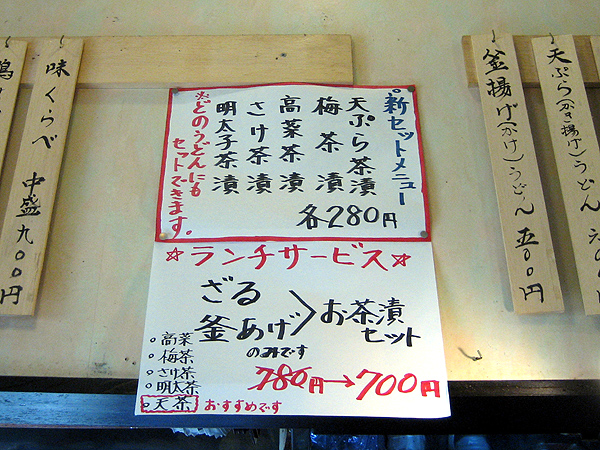 味くらべ 中盛 九〇〇円
新セットメニュー
天ぷら茶漬
梅茶漬
高菜茶漬
さけ茶漬
明太子茶漬
※どのうどんにも
セットできます。
各280円
☆ランチサービス☆
ざる
釜あげ
のみです
お茶漬
セット
780円→700円
高菜
梅茶
さけ茶
明太茶
天茶
おすすめです
釜揚げ(かけ)うどん 五〇〇円
天ぷら(かき揚げ)うどん 六